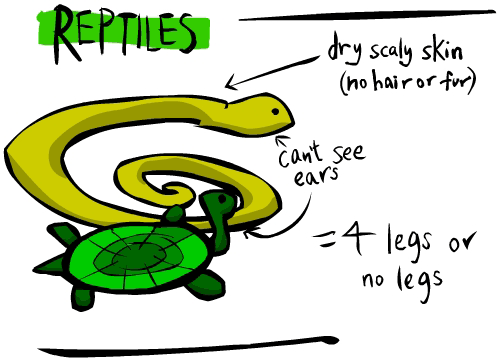 REPTILES
dry scaly skin
(no hair or fur)
can't see
ears
= 4 legs or
no legs